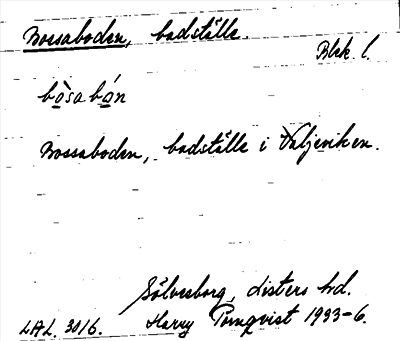 Bossaboden, badställe.
Blek. l.
bò̲sa bó̲n
Bossaboden, badställe i Valjeviken.
Sölvesborg, Listers hd.
LAL. 3016. Harry Törnqvist 1933-6.